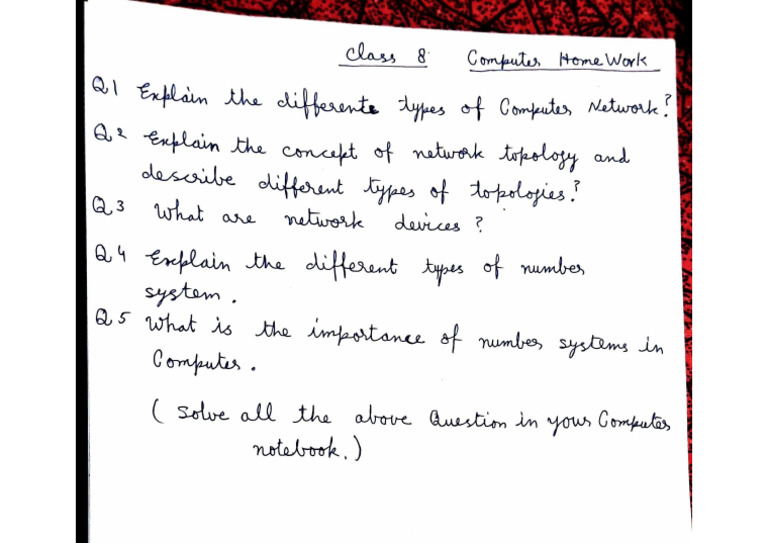 Class 8. Computer Home Work
Q1 Explain the differente types of Computer Network?
Q2 Explain the concept of network topology and
describe different types of topologies?
Q3 What are network devices?
Q4 Explain the different types of number
system.
Q5 What is the importance of number systems in
Computer.
(Solve all the above Question in your Computer
notebook.)